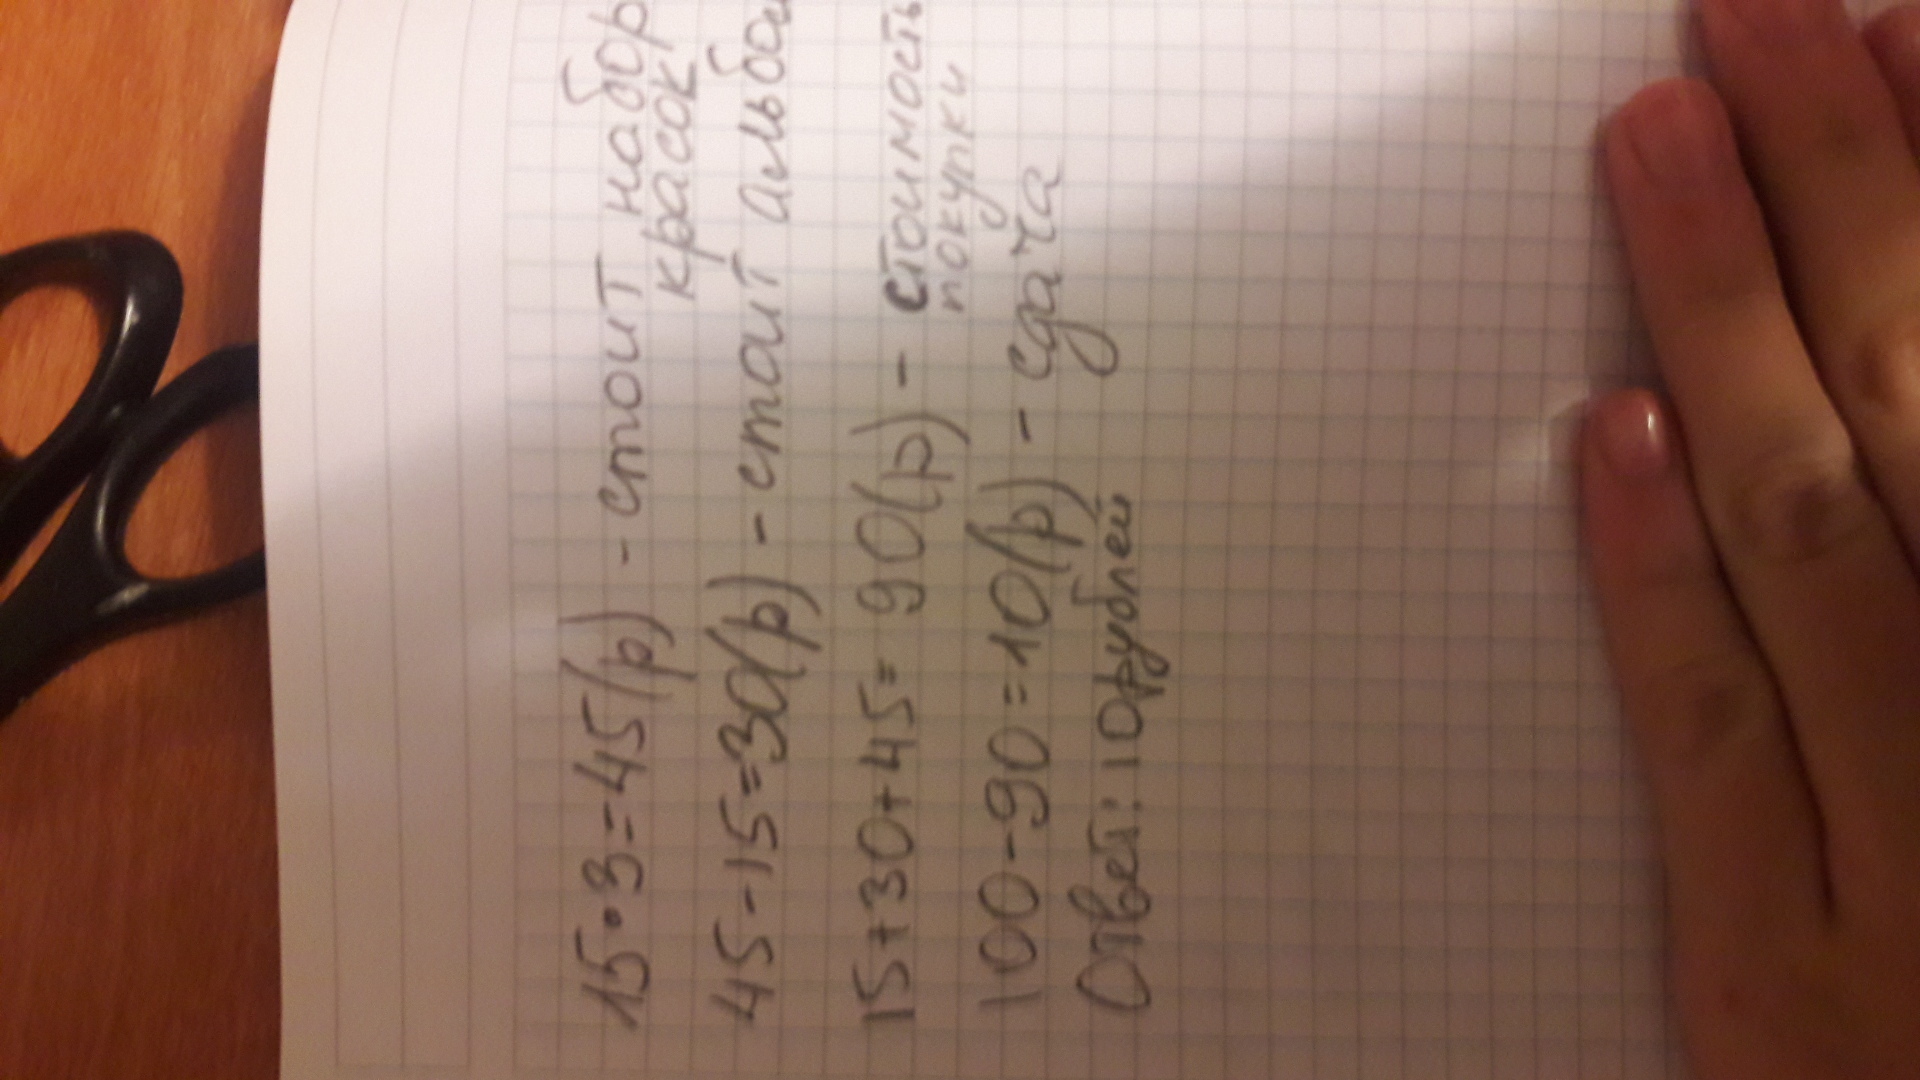 15·3=45(р) - стоит набор
красок
45-15=30(р) - стоит альбом
15+30+45= 90(р) - стоимость
покупки
100-90=10(р) - сдача
Ответ: 10 рублей